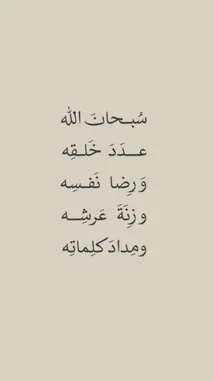 سُبـحانَ الله
عـــدَدَ خَلـقِه
وَرِضا نَفـسِه
وزِنَةَ عَرشِـــه
ومِدادَ كلِماتِه